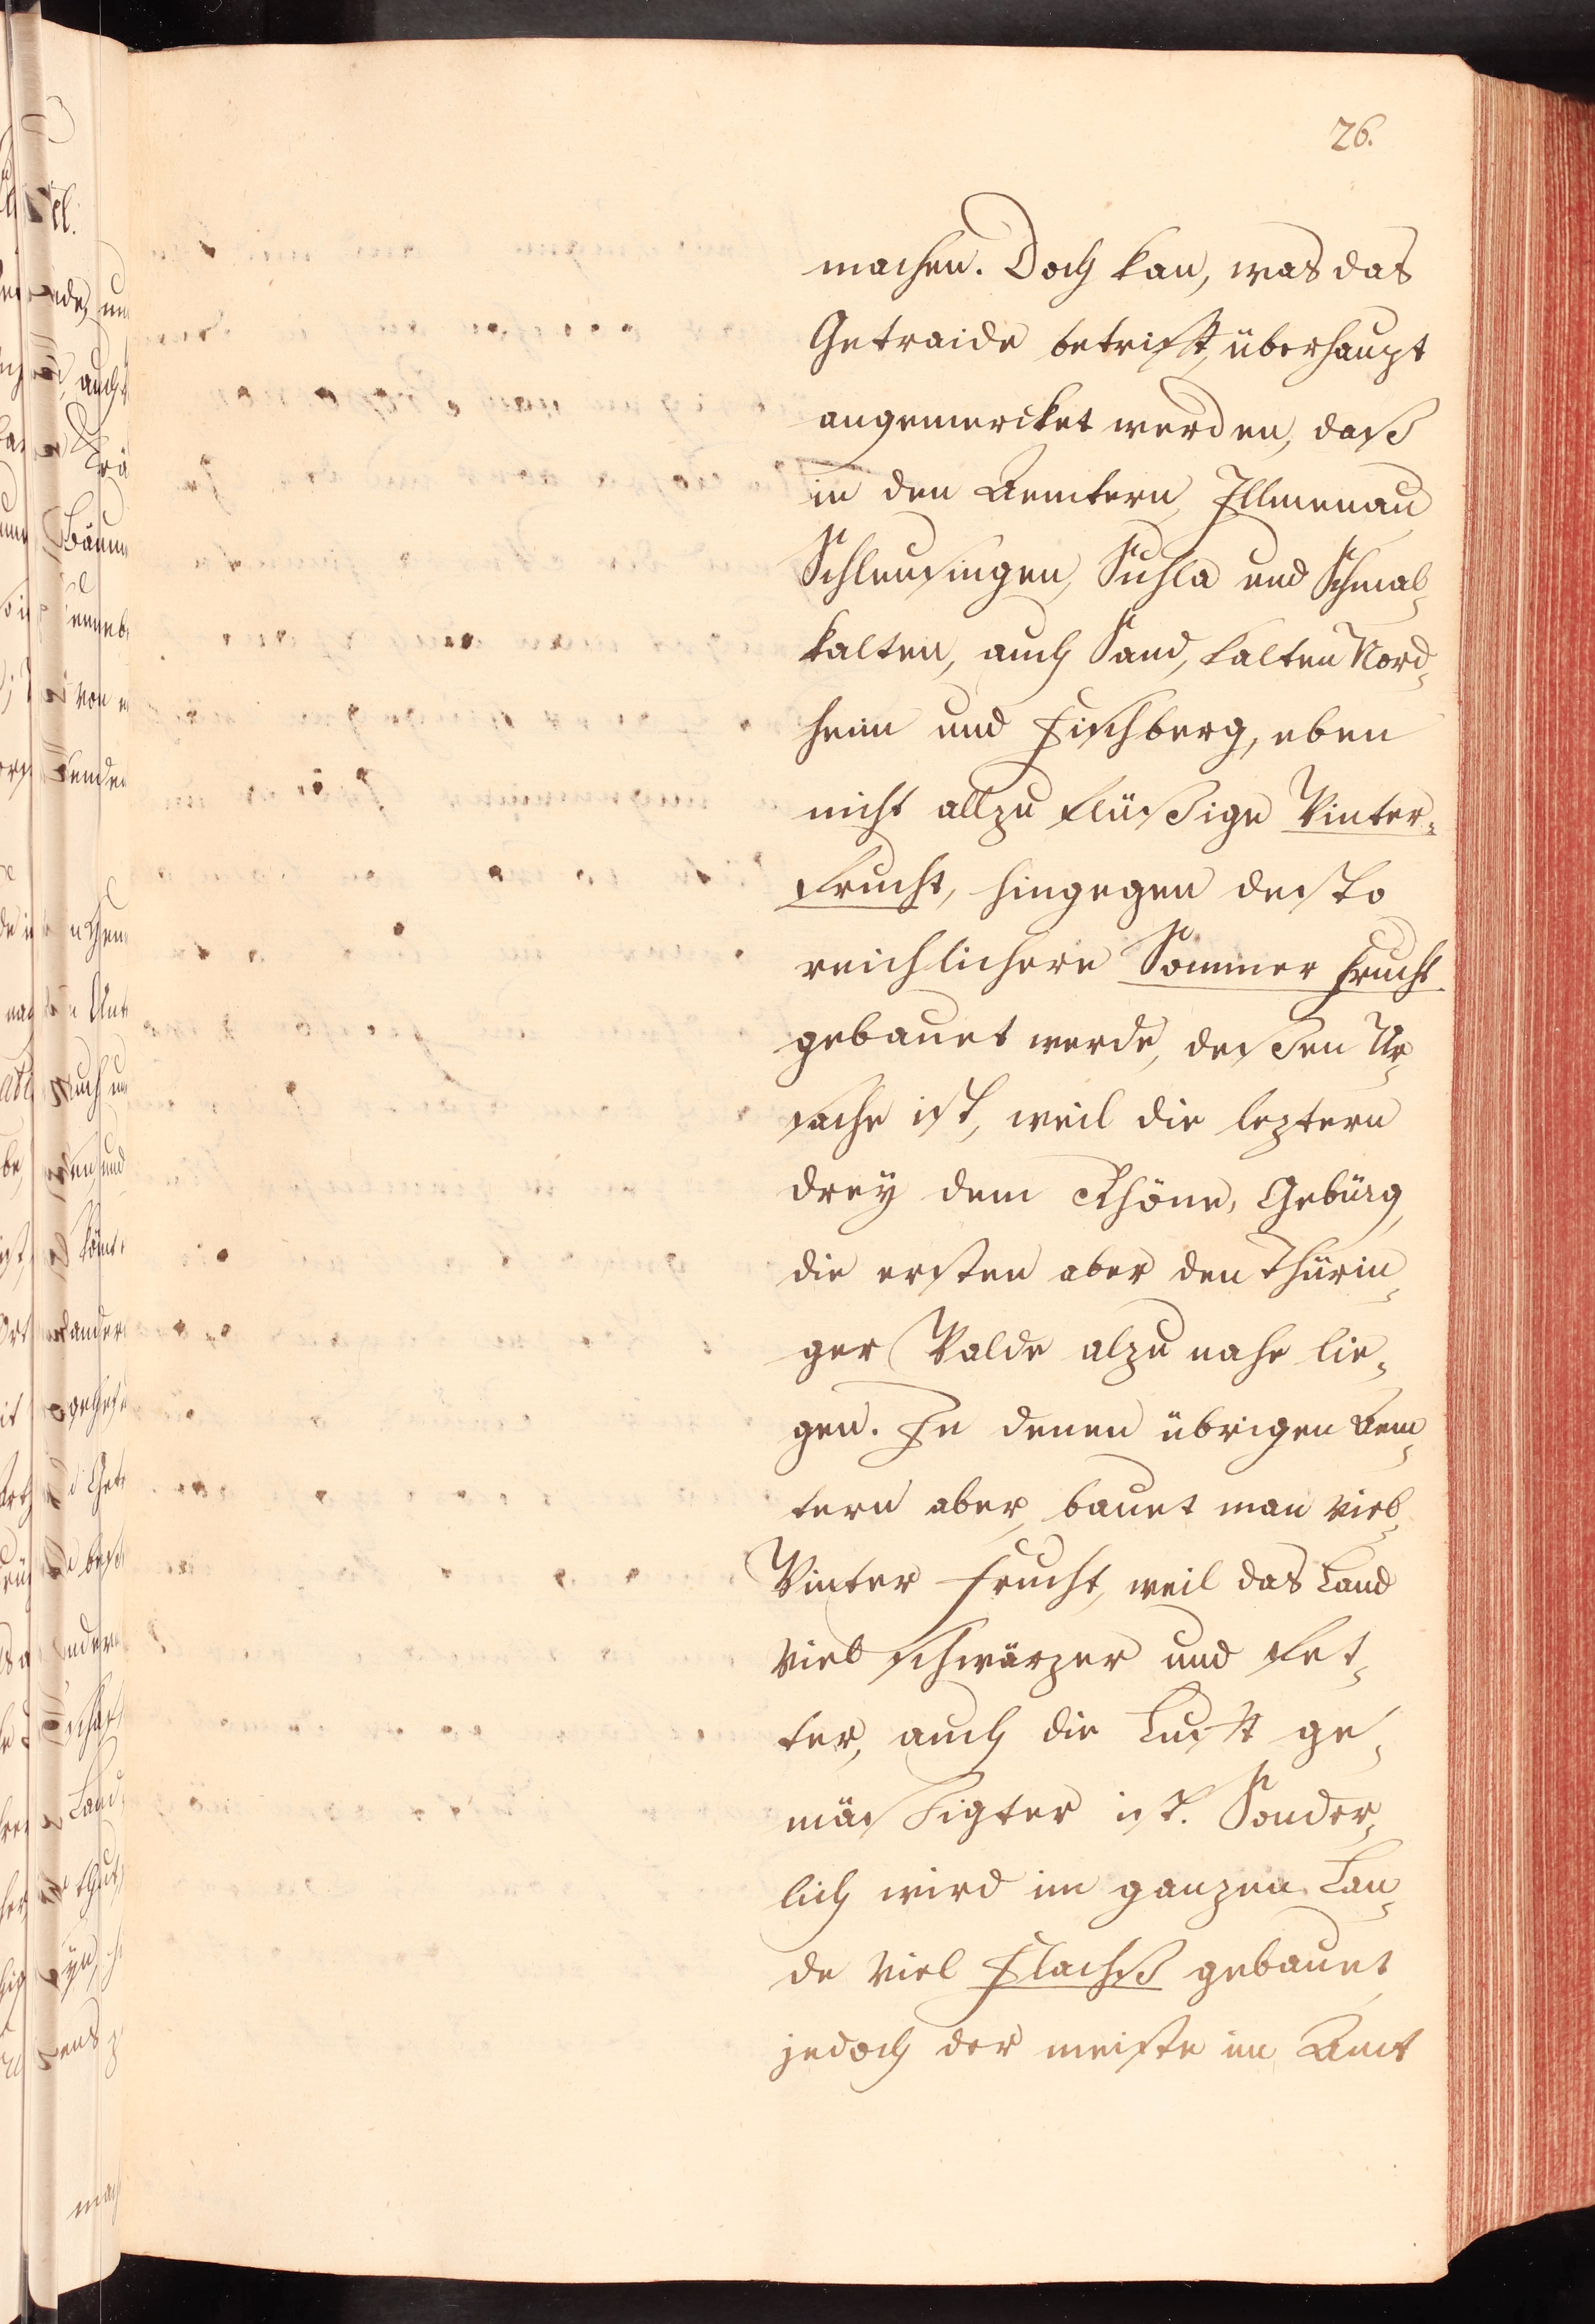 26.
machen. Doch kan, was das
Getraide betrift, überhaupt
angemercket werden, daß
in den Aemtern, Illmenau
Schleusingen, Suhla und Schmal-
kalten, auch Sand, Kalten Nord-
heim und Fischberg, eben
nicht allzu flüßige Winter-
frucht, hingegen desto
reichlichere Sommer Frucht
gebauet werde, deßen Ur-
sache ist, weil die leztern
drey dem Rhöne, Gebürg,
die ersten aber den Thürin-
ger Walde alzu nahe lie-
gen. In denen übrigen Aem-
tern aber, bauet man viel-
Winter Frucht, weil das Land
viel schwärzer und fet-
ter, auch die Luft ge-
mäßigter ist. Sonder-
lich wird im ganzen Lan-
de viel Flachß gebauet,
jedoch der meiste im Amt